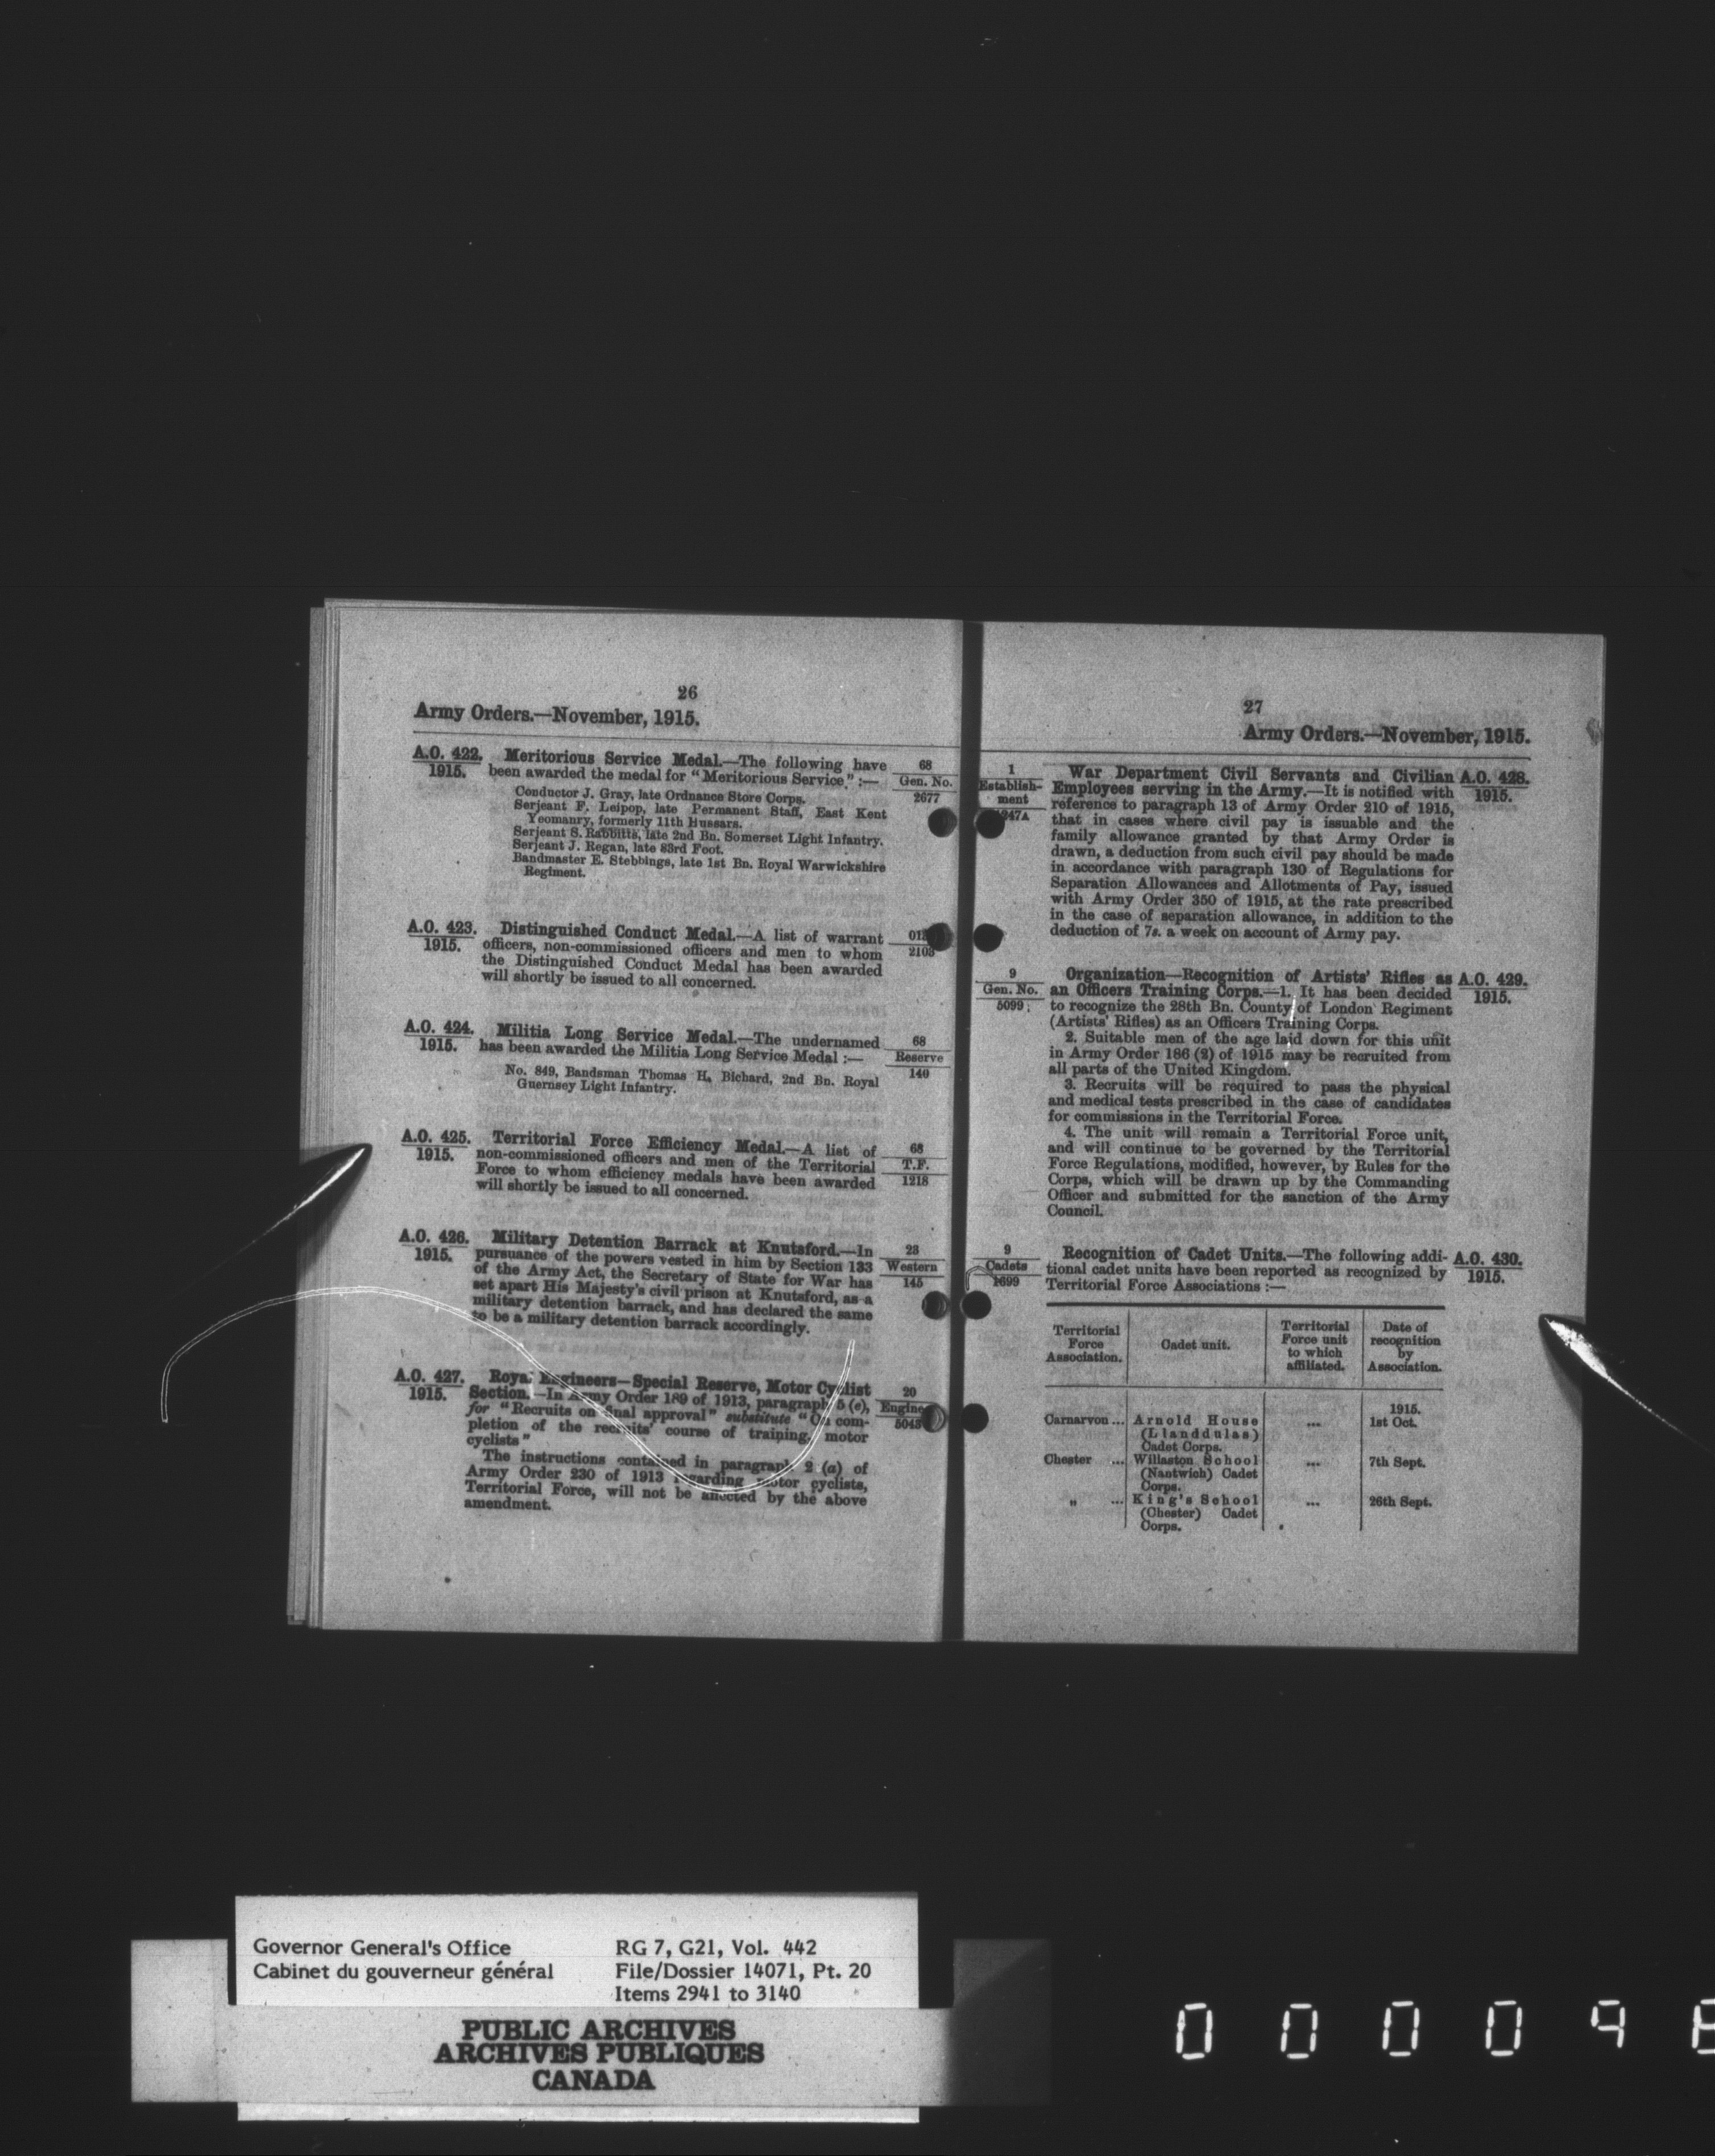 26
Army Orders.—November, 1915.
A.O. 422.
1915.
Meritorious Service Medal.—The following have
been awarded the medal for "Meritorious Service":—
Conductor J. Gray, late Ordnance Store Corps.
Serjeant F. Leipop, late Permanent Staff, East Kent
Yeomanry, formerly 11th Hussars.
Serjeant S. Rabbitts, late 2nd Bn. Somerset Light Infantry.
Serjeant J. Regan, late 83rd Foot.
Bandmaster E. Stebbings, late 1st Bn. Royal Warwickshire
Regiment.
68
Gen. No.
2677
A.O. 423.
1915.
Distinguished Conduct Medal.—A list of warrant
officers, non-commissioned officers and men to whom
the Distinguished Conduct Medal has been awarded
will shortly be issued to all concerned.
2103
A.O. 424.
1915.
Militia Long Service Medal.—The undernamed
has been awarded the Militia Long Service Medal:—
No. 849, Bandsman Thomas H. Bichard, 2nd Bn. Royal
Guernsey Light Infantry.
68
Reserve
140
A.O. 425.
1915.
Territorial Force Efficiency Medal.—A list of
non-commissioned officers and men of the Territorial
Force to whom efficiency medals have been awarded
will shortly be issued to all concerned.
68
T.F.
1218
A.O. 426.
1915.
Military Detention Barrack at Knutsford.—In
pursuance of the powers vested in him by Section 133
of the Army Act, the Secretary of State for War has
set apart His Majesty's civil prison at Knutsford, as a
military detention barrack, and has declared the same
to be a military detention barrack accordingly.
28
Western
145
A.O. 427.
1915.
Royal Engineers—Special Reserve, Motor Cyclist
Section.—In Army Order 189 of 1913, paragraph 5 (e),
for "Recruits on final approval" substitute "On com-
pletion of the recruits' course of training, motor
cyclists"
The instructions contained in paragraph 2 (a) of
Army Order 230 of 1913 regarding motor cyclists,
Territorial Force, will not be affected by the above
amendment.
20
Engine
5043
27
Army Orders.—November, 1915.
1
Establish-
ment
247A
War Department Civil Servants and Civilian
Employees serving in the Army.—It is notified with
reference to paragraph 13 of Army Order 210 of 1915,
that in cases where civil pay is issuable and the
family allowance granted by that Army Order is
drawn, a deduction from such civil pay should be made
in accordance with paragraph 130 of Regulations for
Separation Allowances and Allotments of Pay, issued
with Army Order 350 of 1915, at the rate prescribed
in the case of separation allowance, in addition to the
deduction of 7s. a week on account of Army pay.
A.O. 428.
1915.
9
Gen. No.
5099
Organization—Recognition of Artists' Rifles as
an Officers Training Corps.—1. It has been decided
to recognize the 28th Bn. County of London Regiment
(Artists' Rifles) as an Officers Training Corps.
2. Suitable men of the age laid down for this unit
in Army Order 186 (2) of 1915 may be recruited from
all parts of the United Kingdom.
3. Recruits will be required to pass the physical
and medical tests prescribed in the case of candidates
for commissions in the Territorial Force.
4. The unit will remain a Territorial Force unit,
and will continue to be governed by the Territorial
Force Regulations, modified, however, by Rules for the
Corps, which will be drawn up by the Commanding
Officer and submitted for the sanction of the Army
Council.
A.O. 429.
1915.
9
Cadets
1699
Recognition of Cadet Units.—The following addi-
tional cadet units have been reported as recognized by
Territorial Force Associations:—
A.O. 430.
1915.
Territorial Force Association.
Cadet unit.
Territorial Force unit to which affiliated.
Date of recognition by Association.
1915.
Carnarvon ... Arnold House ... 1st Oct.
(Llanddulas)
Cadet Corps.
Chester ... Willaston School ... 7th Sept.
(Nantwich) Cadet
Corps.
„ ... King's School ... 26th Sept.
(Chester) Cadet
Corps.
Governor General's Office RG 7, G21, Vol. 442
Cabinet du gouverneur général File/Dossier 14071, Pt. 20
Items 2941 to 3140
PUBLIC ARCHIVES
ARCHIVES PUBLIQUES
CANADA
00009